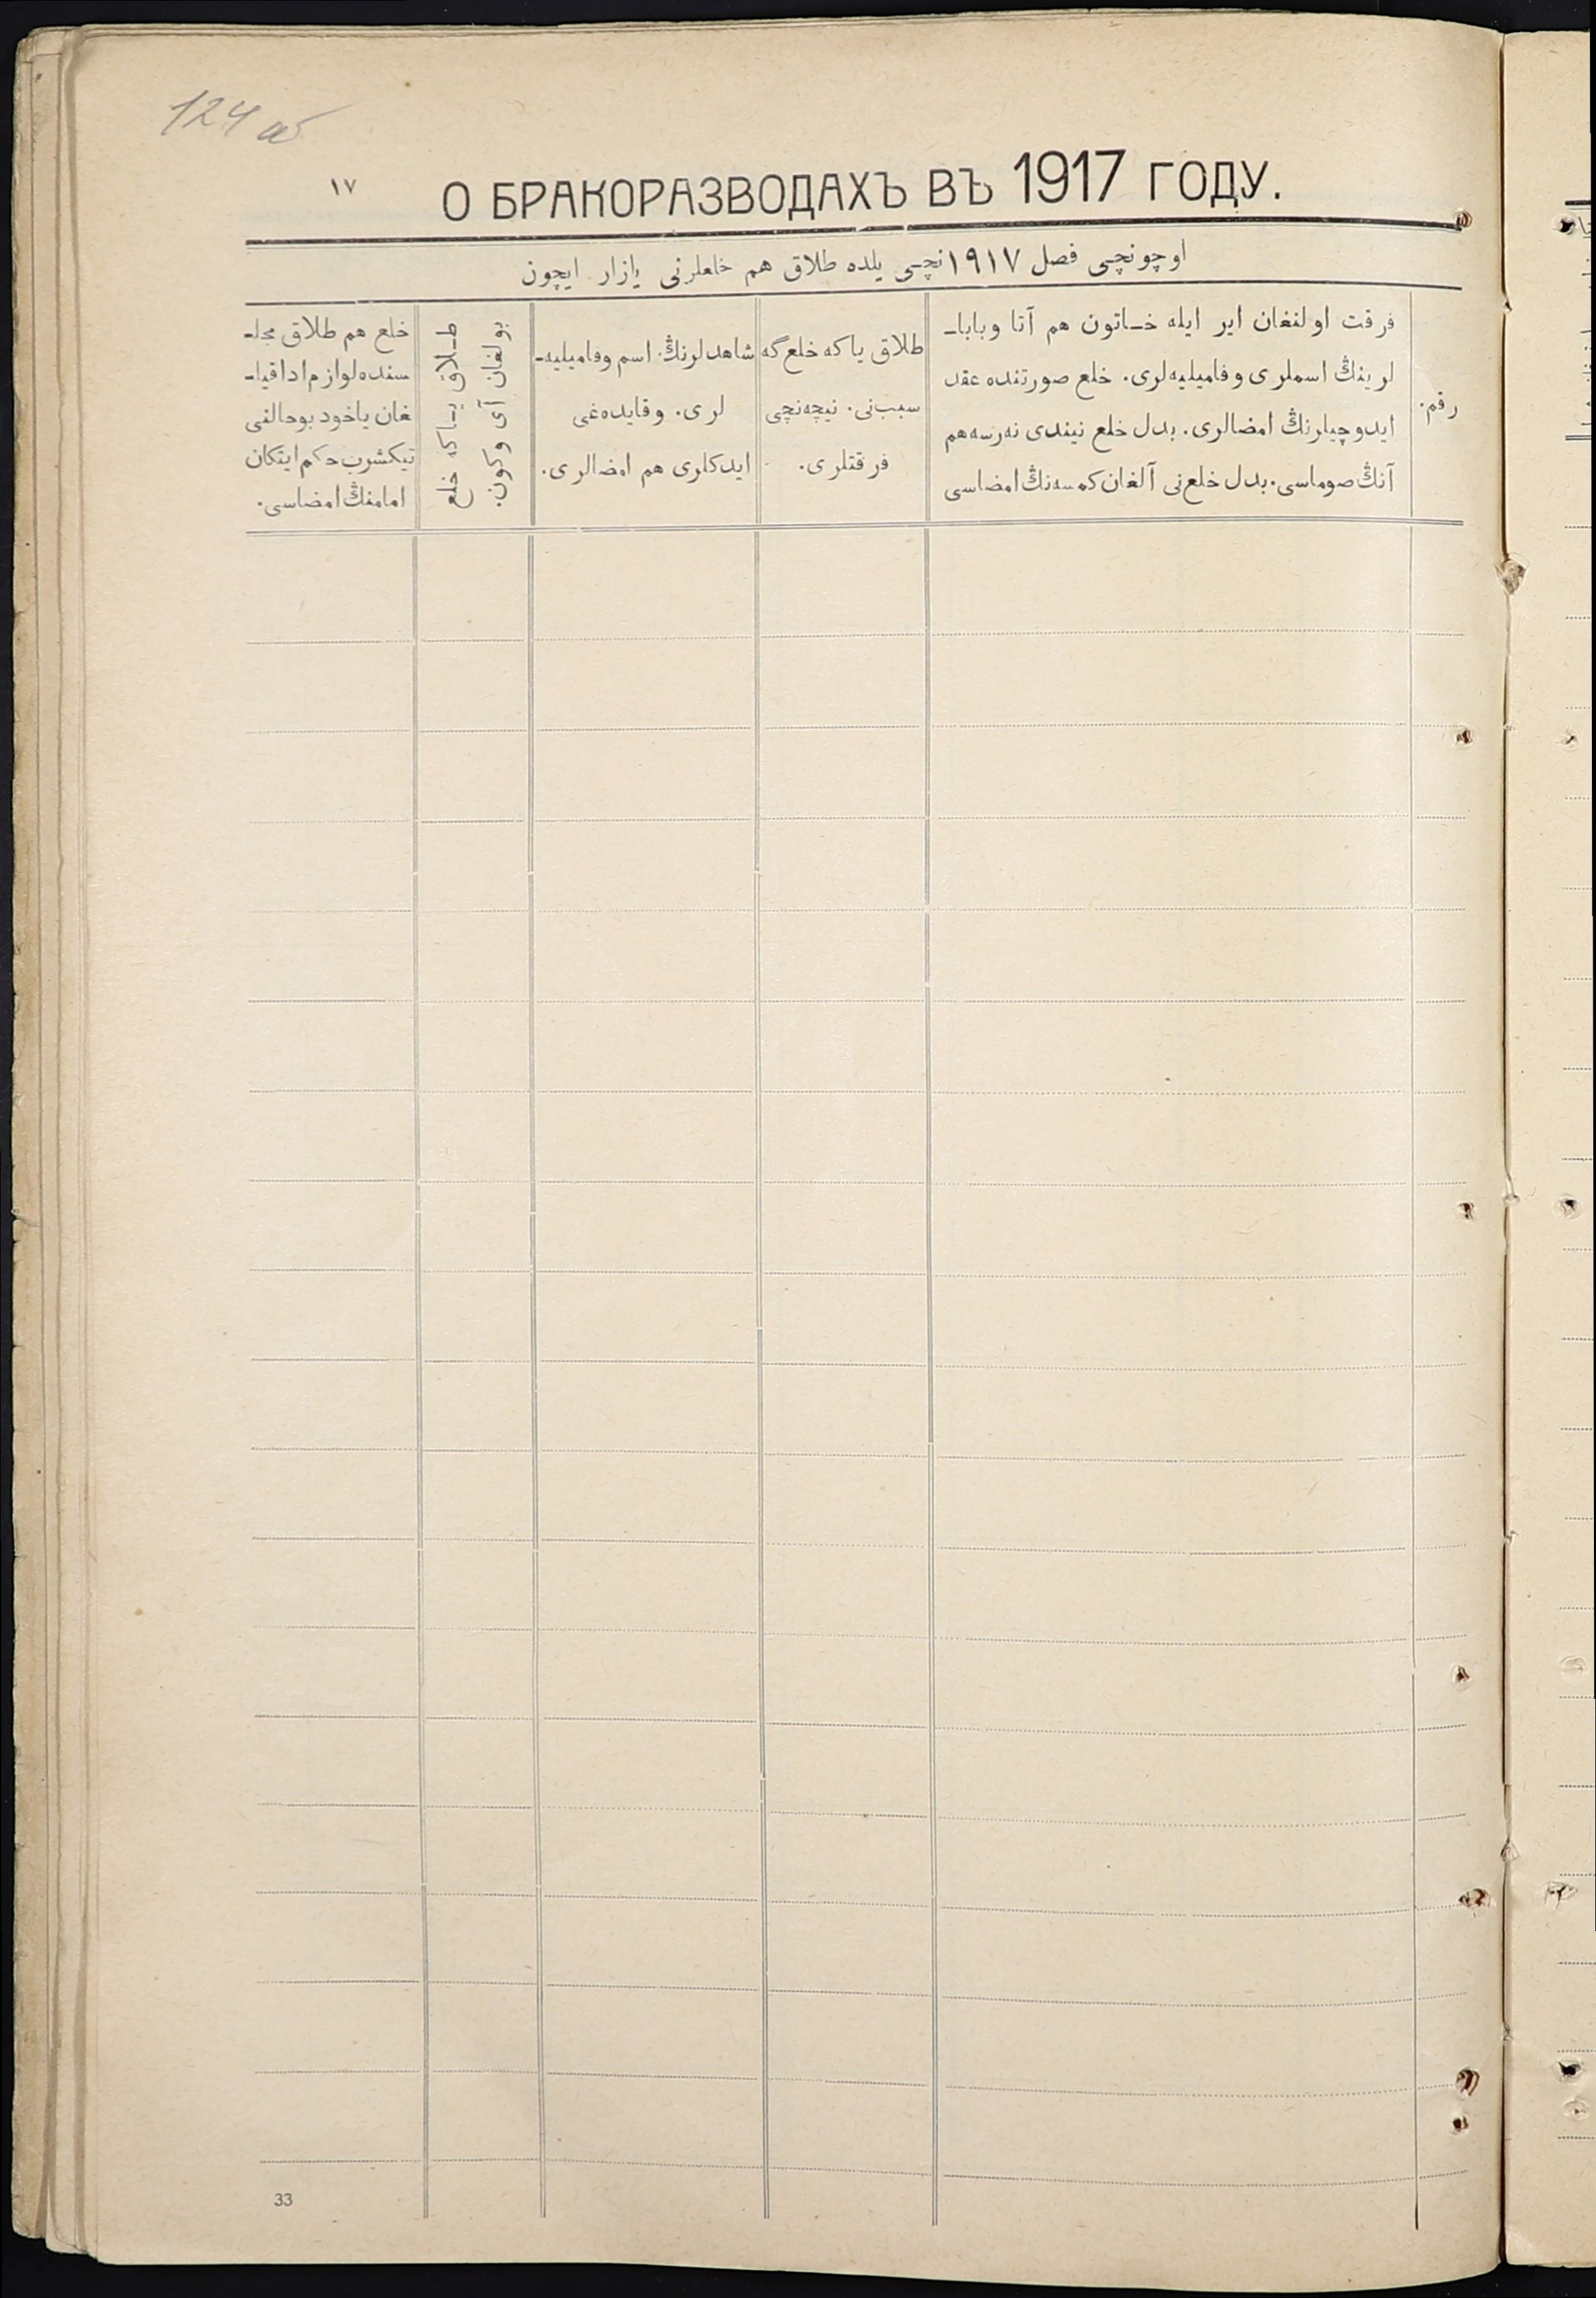 124 об
١٧
О БРАКОРАЗВОДАХЪ ВЪ 1917 ГОДУ.
اوچونچی فصل ١٩١٧ نچی یلده طلاق هم خلعلرنی یازار ایچون
رقم.
فرقت اولنغان ایر ایله خاتون هم آتا وبابا-
لرینڭ اسملری وفامیلیه‌لری. خلع صورتنده عقد
ایدوچیلرنڭ امضالری. بدل خلع نیندی نه‌رسه هم
آنڭ صوماسی. بدل خلع‌نی آلغان کمسه‌نڭ امضاسی
طلاق یاکه خلع گه
سبب‌نی. نیچه‌نچی
فرقتلری.
شاهدلرنڭ اسم وفامیلیه-
لری. وقایده‌غی
ایدکلری هم امضالری.
طلاق یاکه خلع
بولغان آی وکون.
خلع هم طلاق مجلـ
سنده لوازم ادا قیلـ
غان یاخود بوحالنی
تیکشرب حکم ایتکان
امامنڭ امضاسی.
33